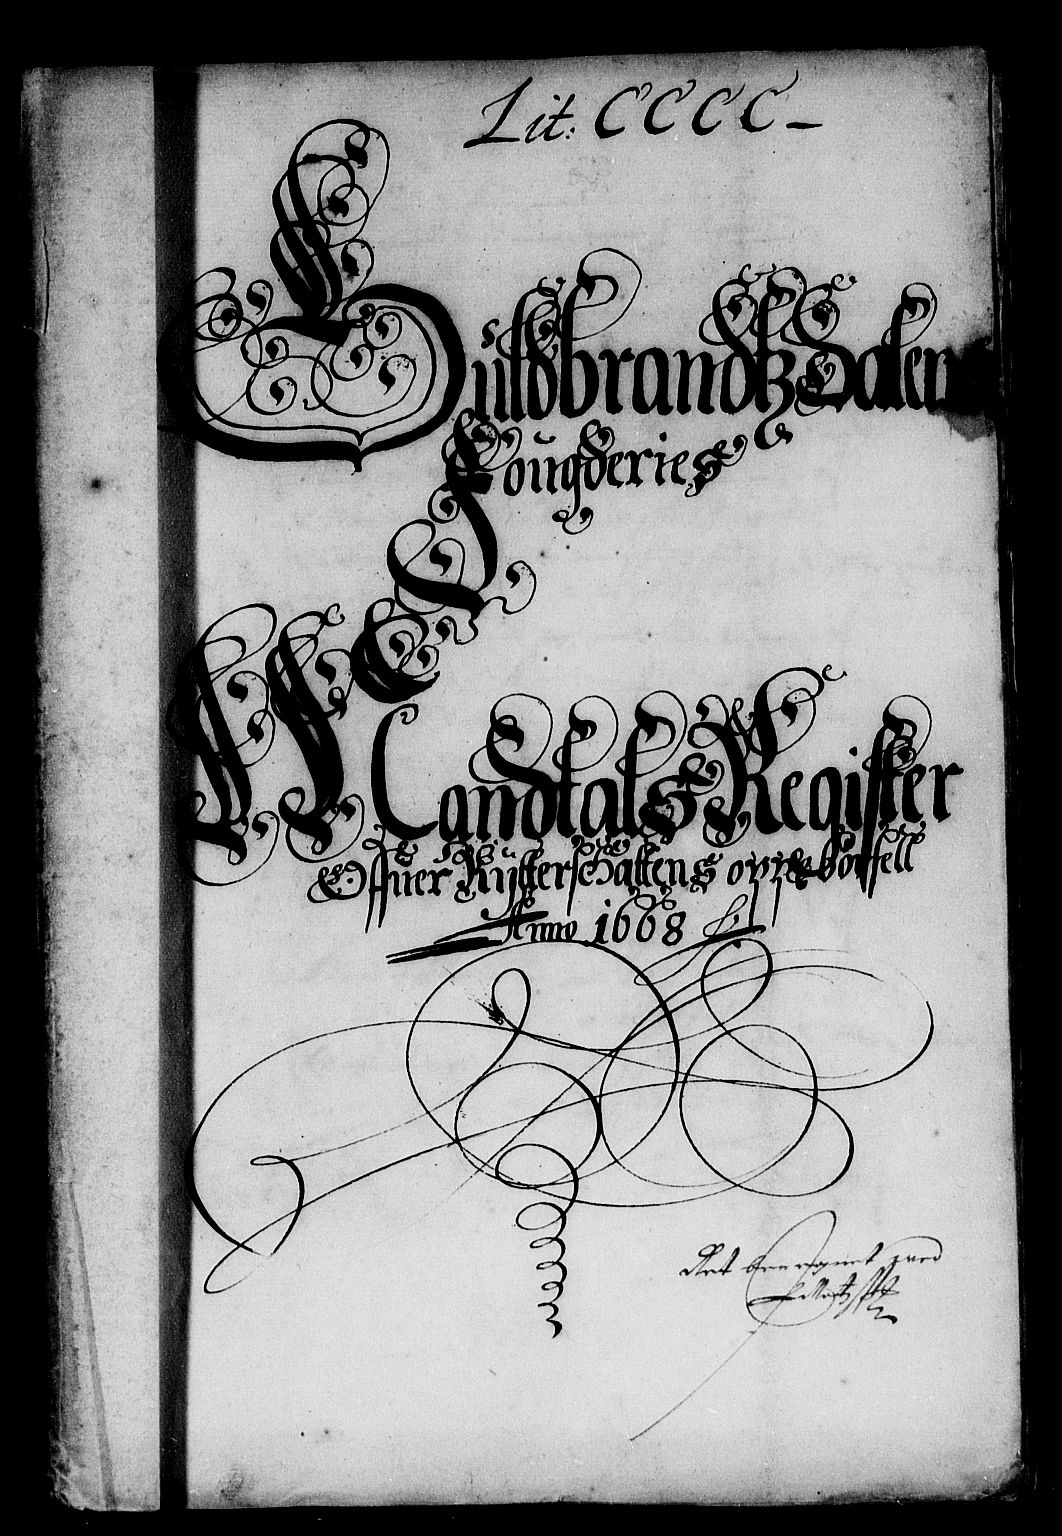 Lit: CCCC
Guldbrandtz Dalens
Fougderies
Mandtals Register
Offuer Rytterschattens oppebörsell
Anno 1668